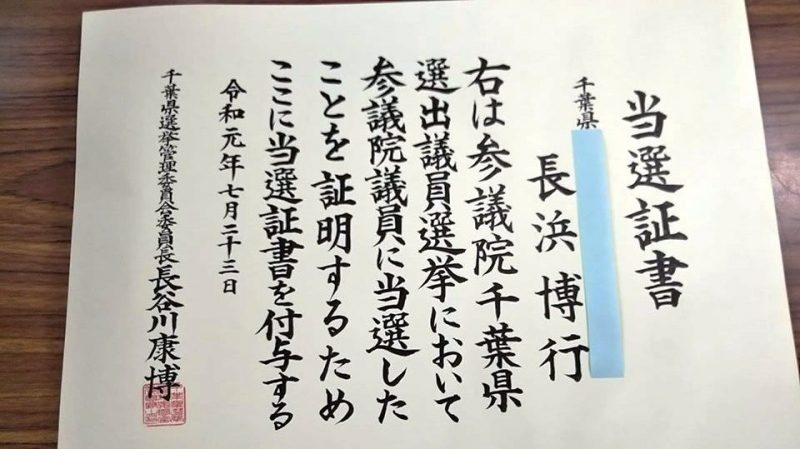 当選証書
千葉県
長浜博行
右は参議院千葉県
選出議員選挙において
参議院議員に当選した
ことを証明するため
ここに当選証書を付与する
令和元年七月二十三日
千葉県選挙管理委員会委員長長谷川康博